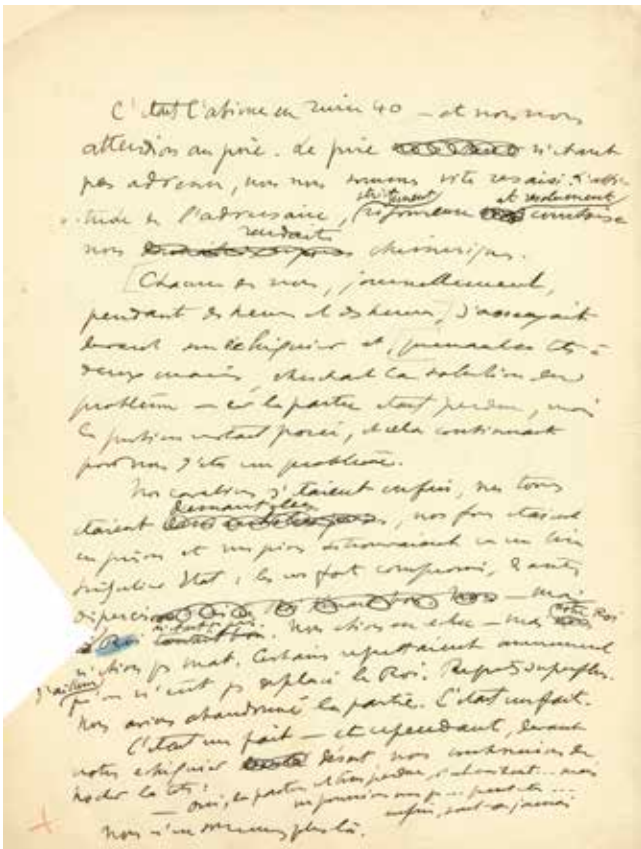 C'était l'abîme en Juin 40 — et nous nous
attendions au pire. Le pire n'étant
pas advenu, nous nous sommes vite ressaisi. L'atti-
strictement et résolument
tude de l'adversaire, rigoureuse courtoise
rendait
nous chimériques.
Chacun de nous, journellement,
pendant des heures et des heures, s'asseyait
devant un échiquier et, prenant la tête à
deux mains, cherchait la solution du
problème — car la partie était perdue, mais
la position restait posée, et cela continuait
pour nous d'être un problème.
Nos cavaliers s'étaient enfuis, nos tours
étaient démantelées, nos fous étaient
en prison et nos pions se trouvaient en un bien
singulier état : les uns fort compromis, d'autres
dispersés — mais
notre Roi
Nous étions en échec — mais
n'étions pas mat. Certains regrettaient amèrement
d'ailleurs
qu'on n'eût pas remplacé le Roi. Regrets superflus.
Nous avions abandonné la partie. C'était un fait.
C'était un fait — et cependant, devant
notre échiquier désert, nous continuions de
hocher la tête :
— Oui, la partie est bien perdue, évidemment... mais
ne pourrions-nous pas... peut-être...
enfin, sait-on jamais
Nous n'en sommes plus là.